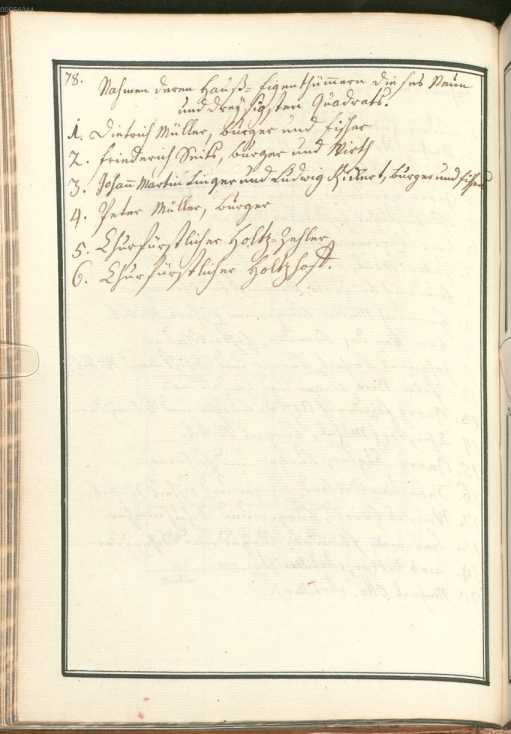 78.
Nahmen deren Hauß-Eigenthümmern dieses Neun
und dreysigsten Quadrats.
1. Dietrich Müller, burger und fischer
2. Friederich Seitz, burger und Wirth
3. Johann Martin Linger und Ludwig, burger und fischer
4. Peter Müller, burger
5. Churfürstlicher Holtz-Zehler
6. Churfürstlicher Holtzhoff.